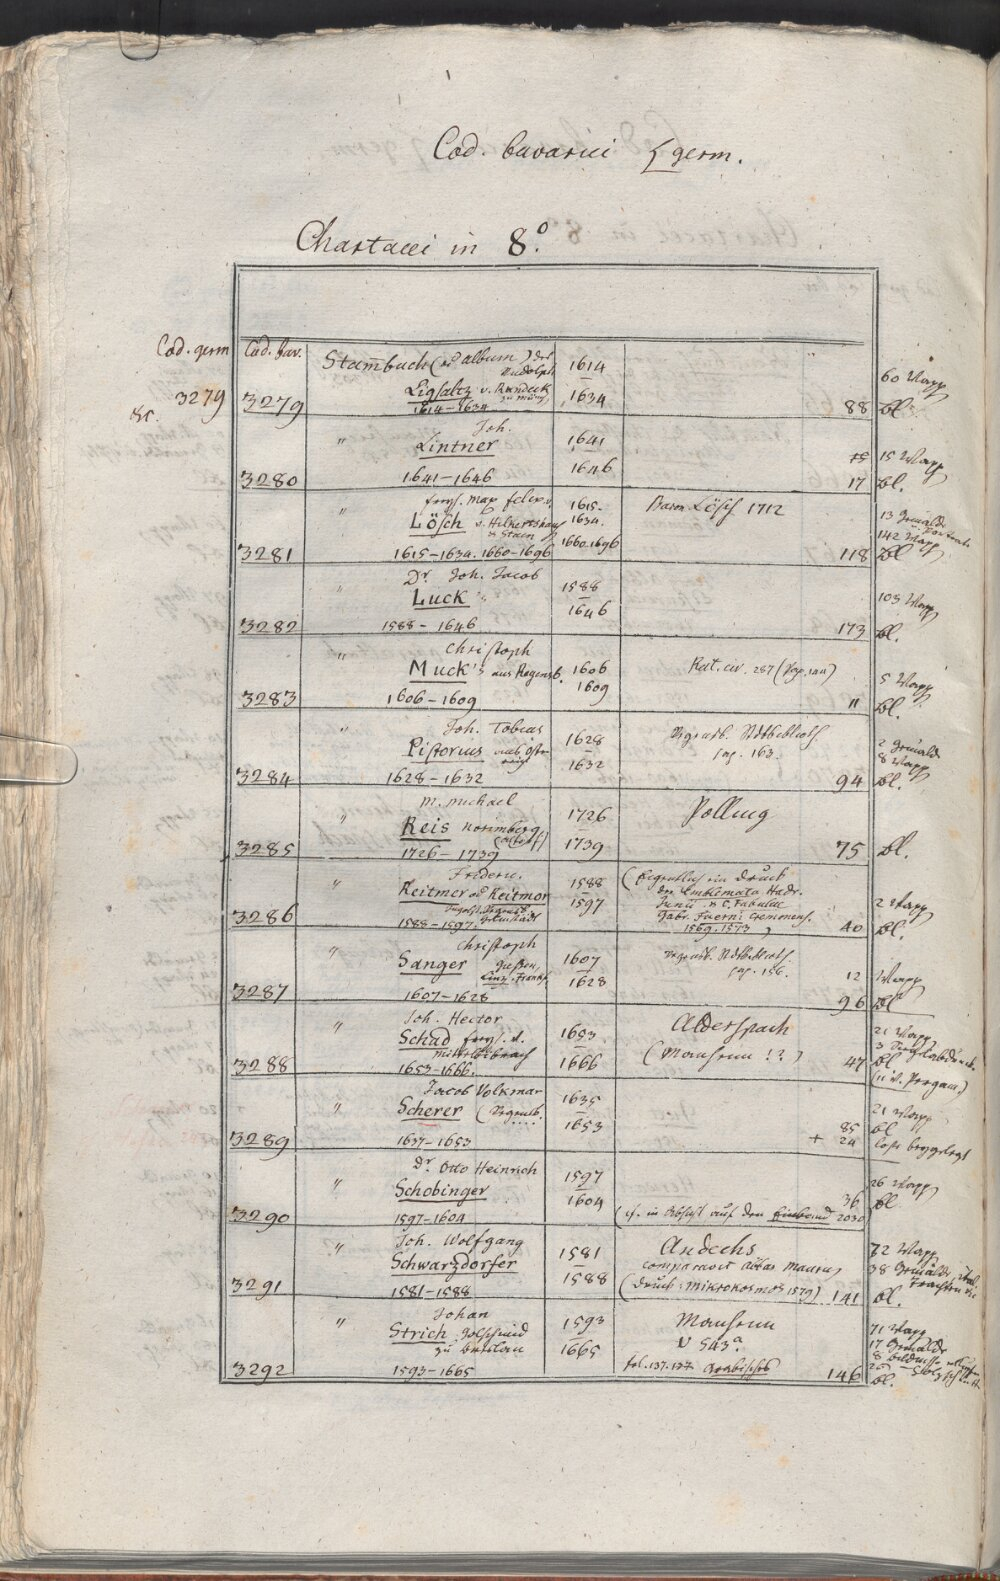 Cod. bavarici germ.
Chartacei in 8°.
Cod. germ Cod. bav.
Stam̄buch (od album) des 1614
Rudolph
60 Wapp
&c. 3279 3279 Ligsaltz v. Rundeck 1634 88 Bl.
zu Münch
1614-1634
" Joh. 1641
Lintner 75 15 Wapp
3280 1641-1646 1646 17 Bl.
" freyh. Max felix v. 1615. Baron Lösch 1712 13 Gemälde
Lösch v. Hilkertshaus 1634. 142 Wapp
& Stain
3281 1615-1634. 1660-1696 1660.1696 118 Bl
" Dr. Joh. Jacob 1588
Luck 1646 103 Wapp
3282 1588-1646 173 Bl.
" Christoph
Muck's aus Regensb. 1606 Rat. civ. 287 (Pap. ) 5 Wapp
3283 1606-1609 1609 " Bl.
" Joh. Tobias 1628 Regensb. Stdtbiblioth 2 Gemälde
Pistorius pag. 163. 8 Wapp
3284 1628-1632 1632 94 Bl.
M. Michael 1726
" Reis Norimberg. Polling
(Altorf)
3285 1726-1739 1739 75 Bl.
Frideric. 1588 (Eigentlich ein Druck
" Reitmer od Reitmor 1597 der Emblemata Hadr.
Junii & C. Fabulae 2 Wapp
Ingolst. Gabr. Faerni Cremonens.
3286 1588-1597. 1569.1573) 40 Bl.
" Christoph 1607 Regensb. Stdtbiblioth
Sanger Gießen, pag. 156. 12 Wapp
Linz. Frankf. 1628
3287 1607-1628 96 Bl
" Joh. Hector 1653 Alderspach 21 Wapp
Schad freyh. v. (Mansonn !?) 3
Mittelbibrach 47 Bl
3288 1653-1666. 1666 (11 v. Pergam.)
Jacob Volkmar 1635
" Scherer (Regensb. 1653 21 Wapp
85 Bl
3289 1637-1653 + 24 lose beygelegt
Dr. Otto Heinrich 1597
" Schobinger 1604 26 Wapp
36 Bl
3290 1597-1604 (cf. in Absicht auf den Einband 2030)
" Joh. Wolfgang 1581 Andechs 72 Wapp
Schwarzdorfer comparavit Abbas Maurus 38 Gemälde
3291 1581-1588 1588 (Druck: Mikrokosmos 1579) 141 Bl.
" Johan 1593 Mansonn 71 Wapp
Strich Goldschmid 1665 V 543ª 17 Gemälde
zu Breslau 8 Bildnisse
fol. 137.137 Arabisches 26 Holzschnitt
3292 1593-1665 146 Bl.